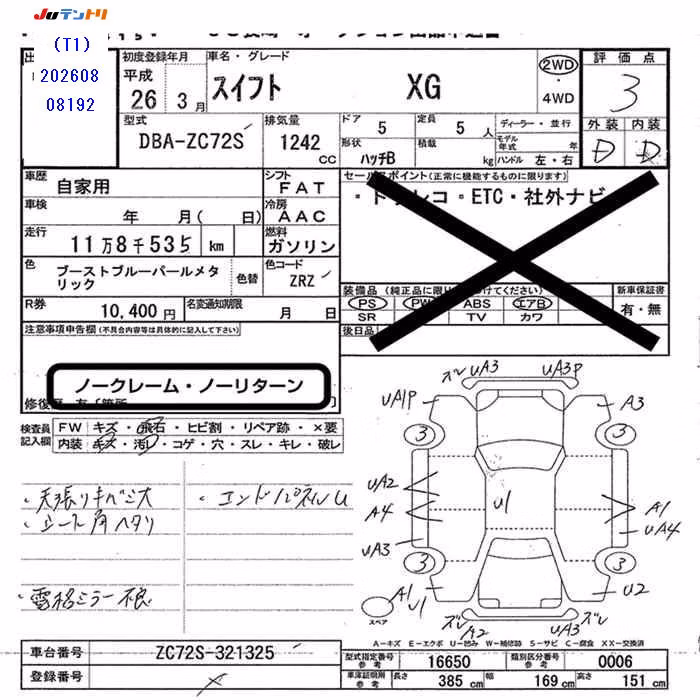 Juテントリ
(T1)
202608
08192
初度登録年月
平成
26年 3月
車名・グレード
スイフト XG
2WD
・
4WD
評価点
3
外装 内装
D D
型式
DBA-ZC72S
排気量
1242 cc
ドア 5
定員 5 人
形状 ハッチB
積載 kg
ディーラー・並行
モデル年式 年
ハンドル 左・右
車歴
自家用
シフト
FAT
車検
年 月( 日)
冷房
AAC
走行
11万8千535 km
燃料
ガソリン
色
ブーストブルーパールメタリック
色替
色コード
ZRZ
R券
10,400円
名変通知期限
月 日
セールスポイント(正常に機能するものに限ります)
・ドラレコ・ETC・社外ナビ
装備品(純正品に限り○を付けてください)
PS PW ABS エアB
SR TV カワ
新車保証書
有・無
後日品
注意事項申告欄(不具合内容等は具体的に記入して下さい)
ノークレーム・ノーリターン
検査員記入欄
FW キズ・飛石・ヒビ割・リペア跡・×要
内装 キズ・汚レ・コゲ・穴・スレ・キレ・破レ
・天張りキバミ大
・シート角ヘタリ
・エンドパネルU
・電格ミラー不良
ズレ UA3 UA3P
UA1P A3
3 3
UA2
A4
U1
A1
UA4
UA3
3 3
A1
U1
U2
スペア
ズレ A2 UA3 ズレ
A-キズ E-エクボ U-凹み W-補修跡 S-サビ C-腐食 XX-交換済
車台番号
ZC72S-321325
登録番号
型式指定番号参考 16650
類別区分番号参考 0006
車庫証明用参考 長さ 385 cm 幅 169 cm 高さ 151 cm